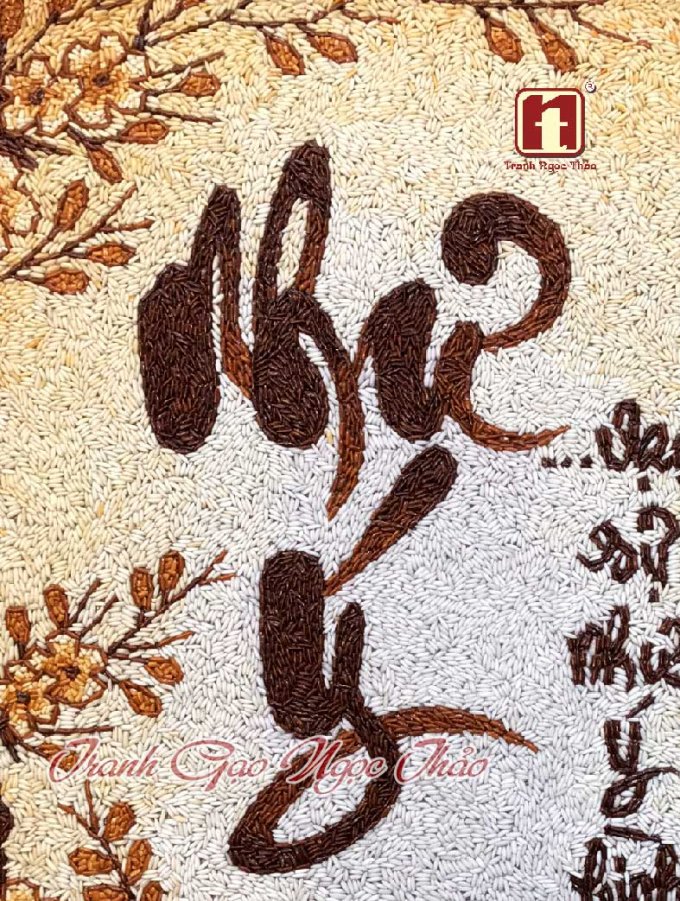 Tranh Ngọc Thảo
Như
Ý
...Vạn
sự
như
ý
Tranh Gạo Ngọc Thảo